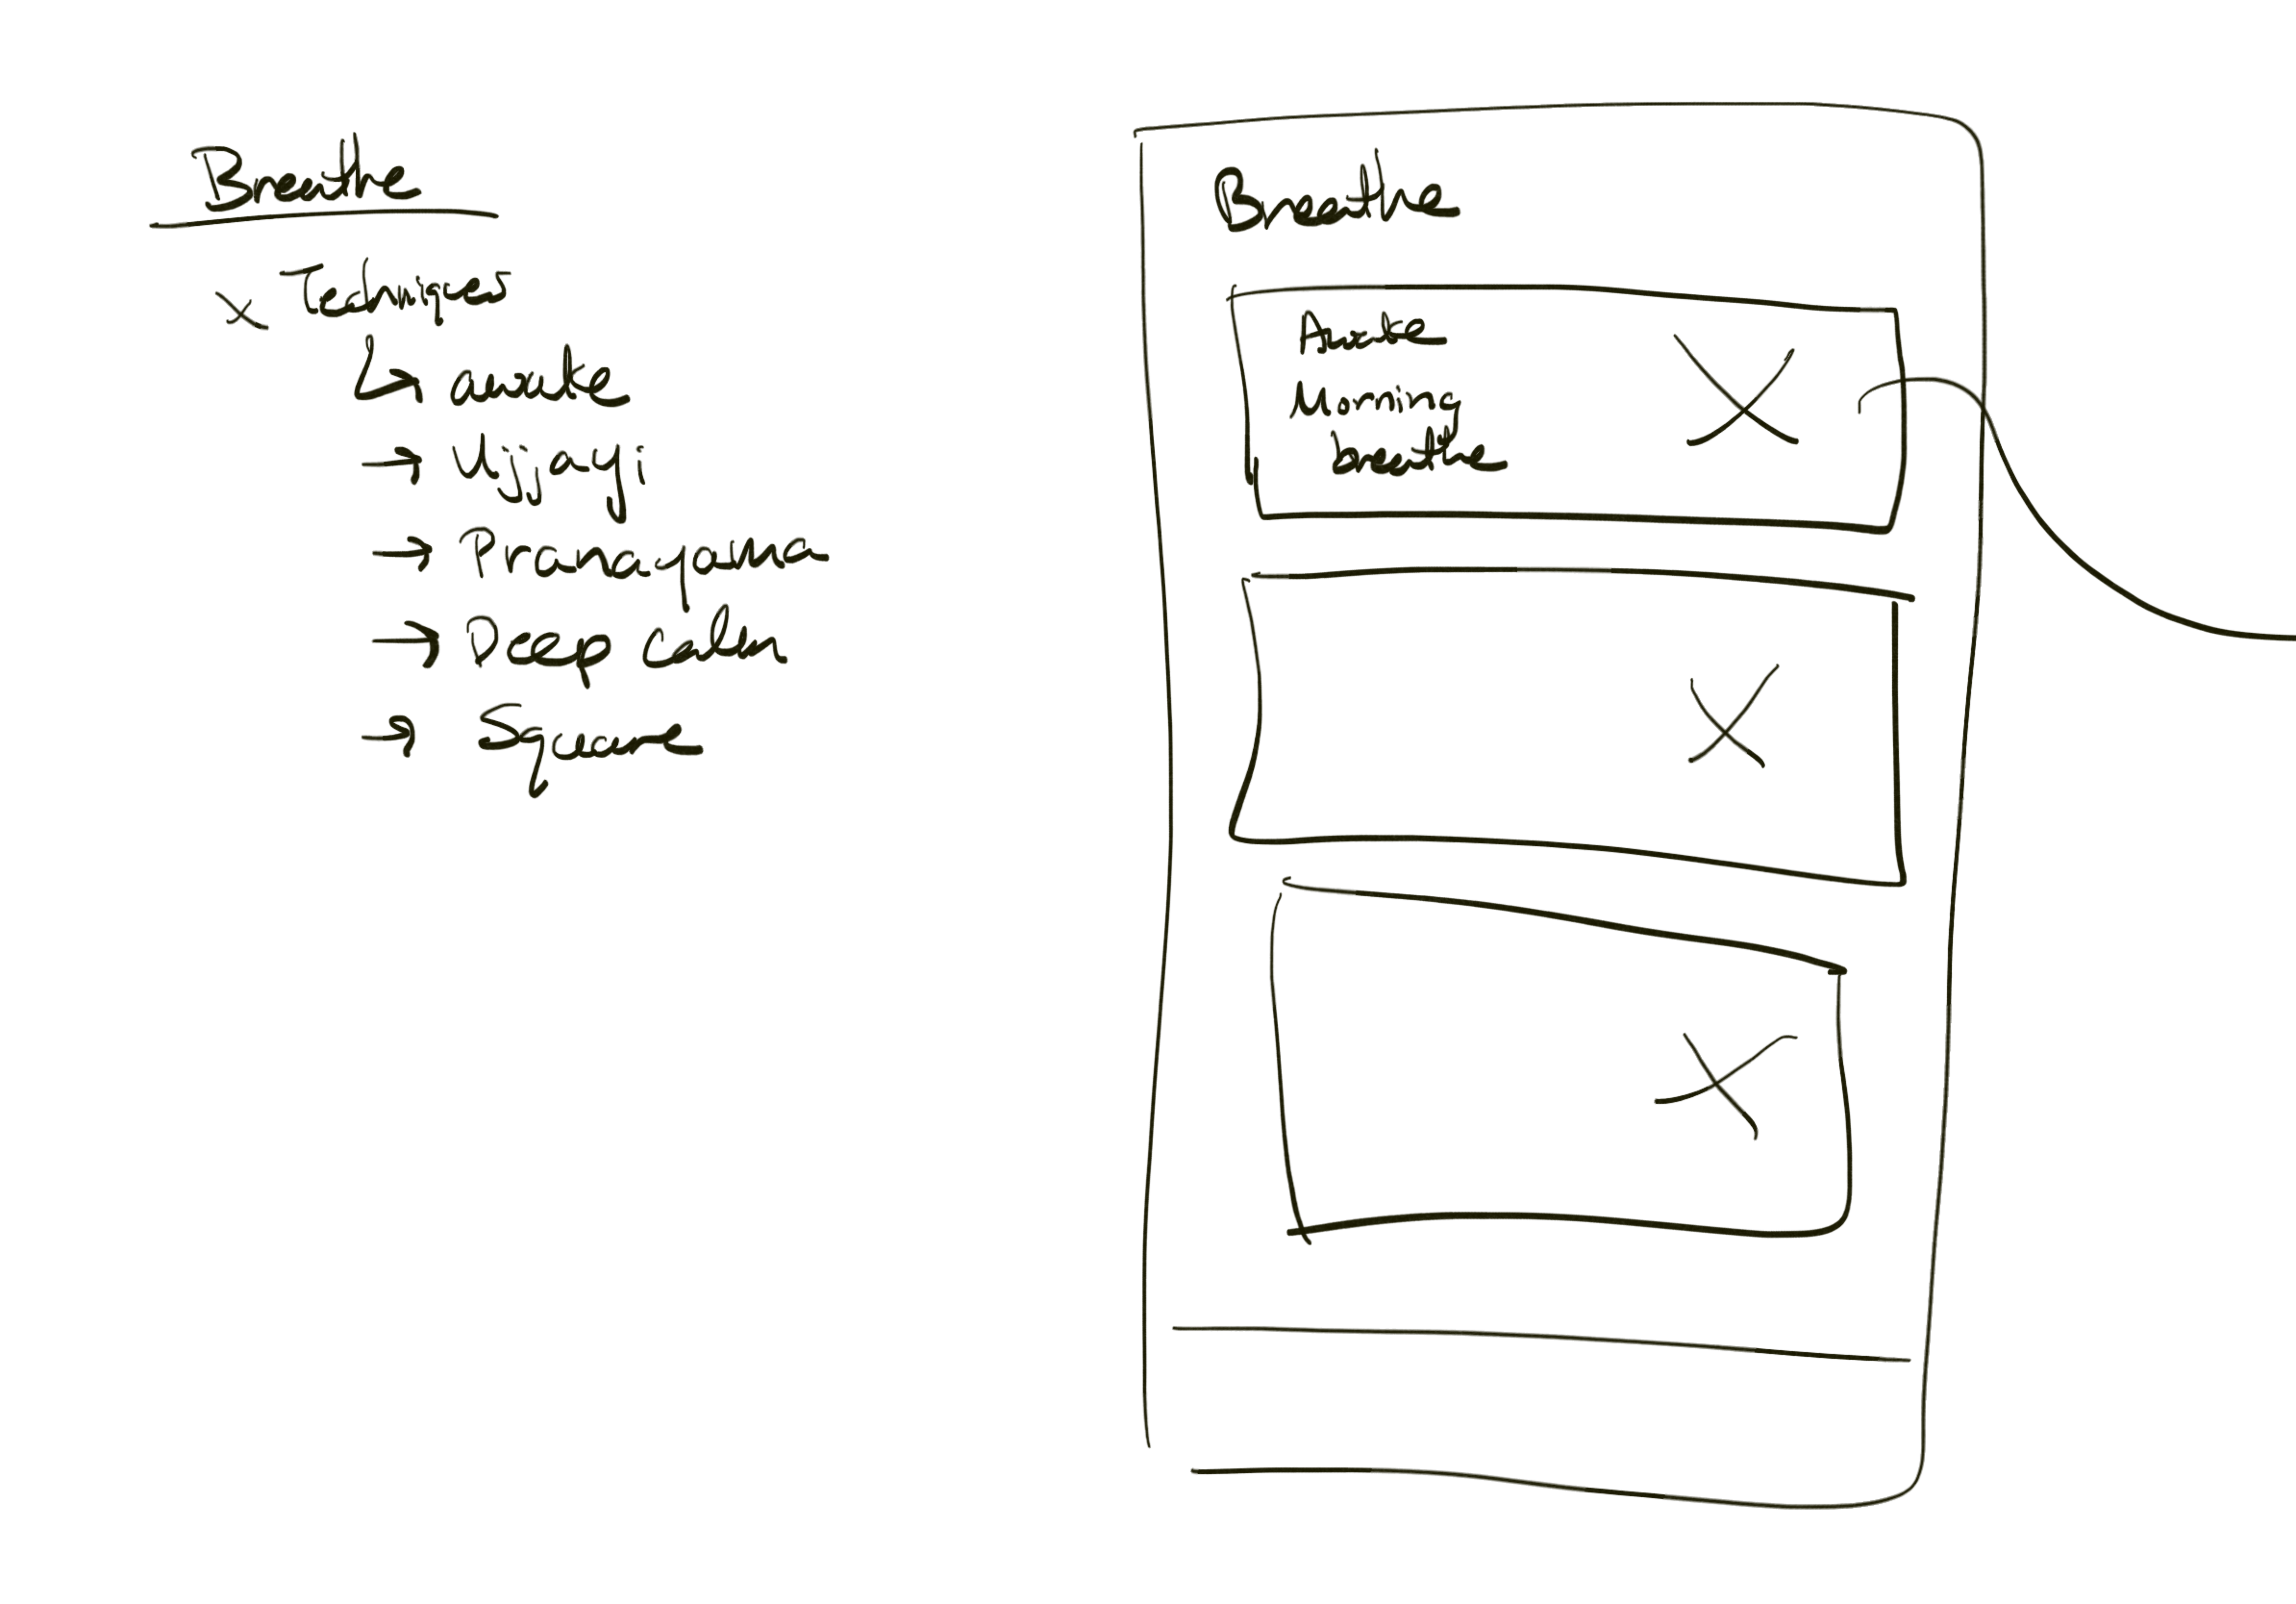 Breathe
x Techniques
↳ awake
→ Ujjayi
→ Pranayama
→ Deep Calm
→ Square
Breathe
Awake
Morning
breathe